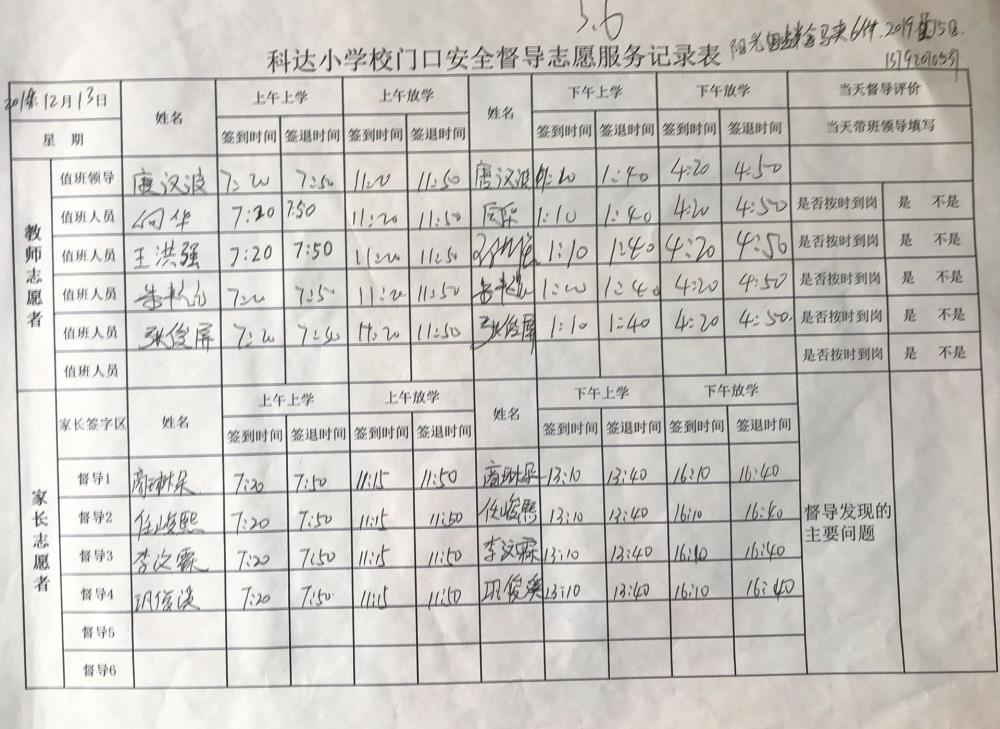 5.6
科达小学校门口安全督导志愿服务记录表
阳光 马夹6件.2019 15日.
12月13日 姓名 上午上学 上午放学 姓名 下午上学 下午放学 当天督导评价
星 期 签到时间 签退时间 签到时间 签退时间 签到时间 签退时间 签到时间 签退时间 当天带班领导填写
教师志愿者
值班领导 唐汉波 7:20 7:50 11:20 11:50 唐汉波 1:40 4:20 4:50
值班人员 何华 7:20 7:50 11:20 11:50 1:10 1:40 4:20 4:50 是否按时到岗 是 不是
值班人员 王洪强 7:20 7:50 11:20 11:50 1:10 1:40 4:20 4:50 是否按时到岗 是 不是
值班人员 7:20 7:50 11:20 11:50 1:40 4:20 4:50 是否按时到岗 是 不是
值班人员 张俊屏 7:20 7:40 11:20 11:50 张俊屏 1:10 1:40 4:20 4:50. 是否按时到岗 是 不是
值班人员 是否按时到岗 是 不是
家长志愿者
家长签字区 姓名 上午上学 上午放学 姓名 下午上学 下午放学
签到时间 签退时间 签到时间 签退时间 签到时间 签退时间 签到时间 签退时间
督导1 商琳朵 7:20 7:50 11:15 11:50 商琳朵 13:10 13:40 16:10 16:40
督导2 任峻熙 7:20 7:50 11:15 11:50 任峻熙 13:10 13:40 16:10 16:40
督导发现的
主要问题
督导3 李汶霖 7:20 7:50 11:15 11:50 李汶霖 13:10 13:40 16:10 16:40
督导4 巩俊溪 7:20 7:50 11:15 11:50 巩俊溪 13:10 13:40 16:10 16:40
督导5
督导6